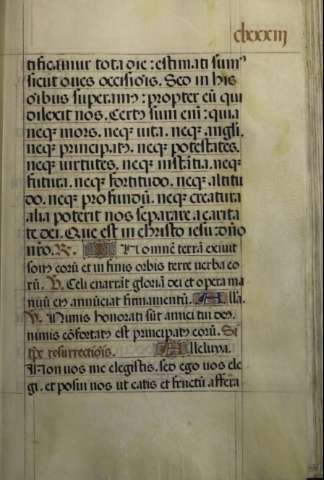 clxxxiii
tificamur tota die : estimati sum⁹
sicut oues occisiōis. Sed in his
oībus superam⁹ : propter eū qui
dilexit nos. Cert⁹ sum eni : quia
neqȝ mors. neqȝ uita. neqȝ angli.
neqȝ principat⁹. neqȝ potestates.
neqȝ virtutes. neqȝ instātia. neqȝ
futura. neqȝ fortitudo. neqȝ altitu
do. neqȝ profundū. neqȝ creatura
alia poterit nos separare a carita
te dei. Que est in christo iesu : dño
nro. R. In omnē terrā exiuit
son⁹ eorū et in finis orbis terre verba eo
rū. V. Celi enarrāt gloriā dei et opera ma
nuū ei⁹ annūciat firmamentū. Alla.
V. Nimis honorati sūt amici tui de⁹.
nimis cōfortat⁹ est principat⁹ eorū. Si
tpe resurrectiōis. Alleluya.
Non vos me elegistis. sed ego vos ele
gi. et posui vos ut eatis et fructū afferā